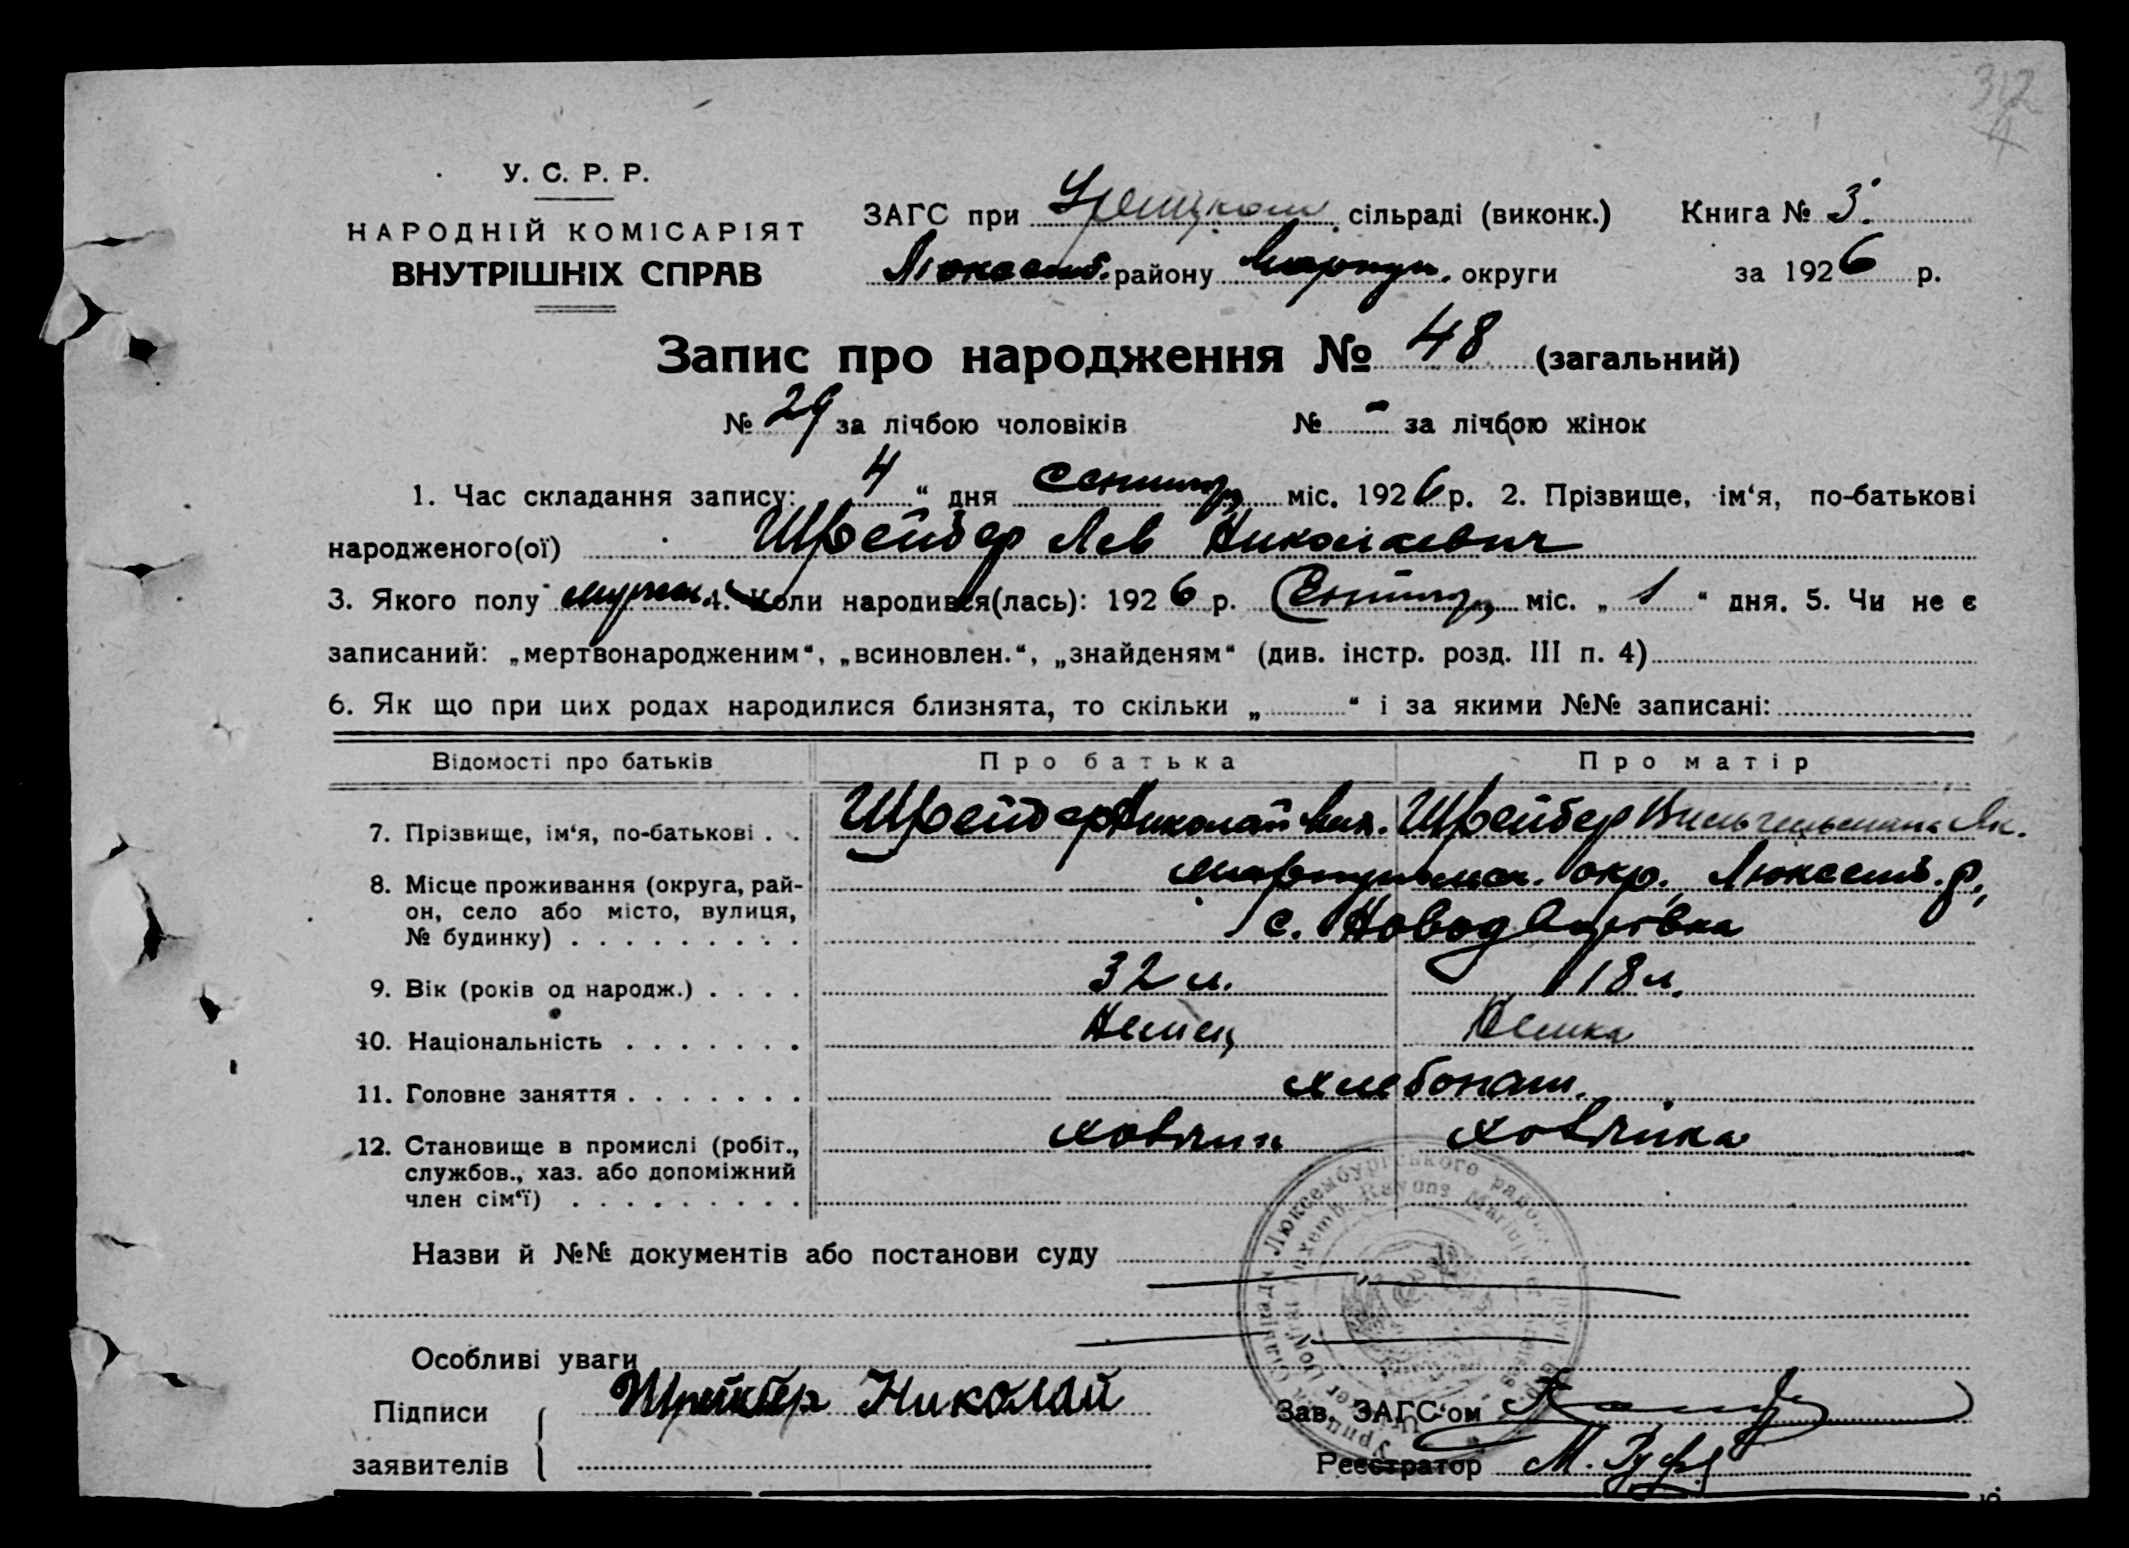 312
У. С. Р. Р.
НАРОДНІЙ КОМІСАРІЯТ
ВНУТРІШНІХ СПРАВ
ЗАГС при Урицком сільраді (виконк.) Книга № 3.
Люксемб. району Мариуп. округи за 1926 р.
Запис про народження № 48 (загальний)
№ 29 за лічбою чоловіків № - за лічбою жінок
1. Час складання запису: 4 “ дня Сентябр міс. 1926 р. 2. Прізвище, ім‘я, по-батькові
народженого(ої) Шрейбер Лев Николаевич
3. Якого полу мужск. 4. Коли народився(лась): 1926 р. Сентябр міс. „ 1 “ дня. 5. Чи не є
записаний: „мертвонародженим“, „всиновлен.“, „знайденям“ (див. інстр. розд. III п. 4)
6. Як що при цих родах народилися близнята, то скільки „ “ і за якими №№ записані:
Відомості про батьків Про батька Про матір
7. Прізвище, ім‘я, по-батькові . . Шрейбер Николай Шрейбер Вильгельмина Як.
8. Місце проживання (округа, рай- Мариупольск. окр. Люксемб. р.,
он, село або місто, вулиця, с. Новодворовка
№ будинку) . . . . . . . . .
9. Вік (років од народж.) . . . . 32 л. 18 л.
10. Національність . . . . . . . Немец Немка
11. Головне заняття . . . . . . . хлебопаш.
12. Становище в промислі (робіт., хозяин хозяйка
службов., хаз. або допоміжний
член сім‘ї) . . . . . . . . .
Назви й №№ документів або постанови суду
Особливі уваги
Підписи Шрейбер Николай Зав. ЗАГС‘ом
заявителів Реєстратор М.
Люксембургського